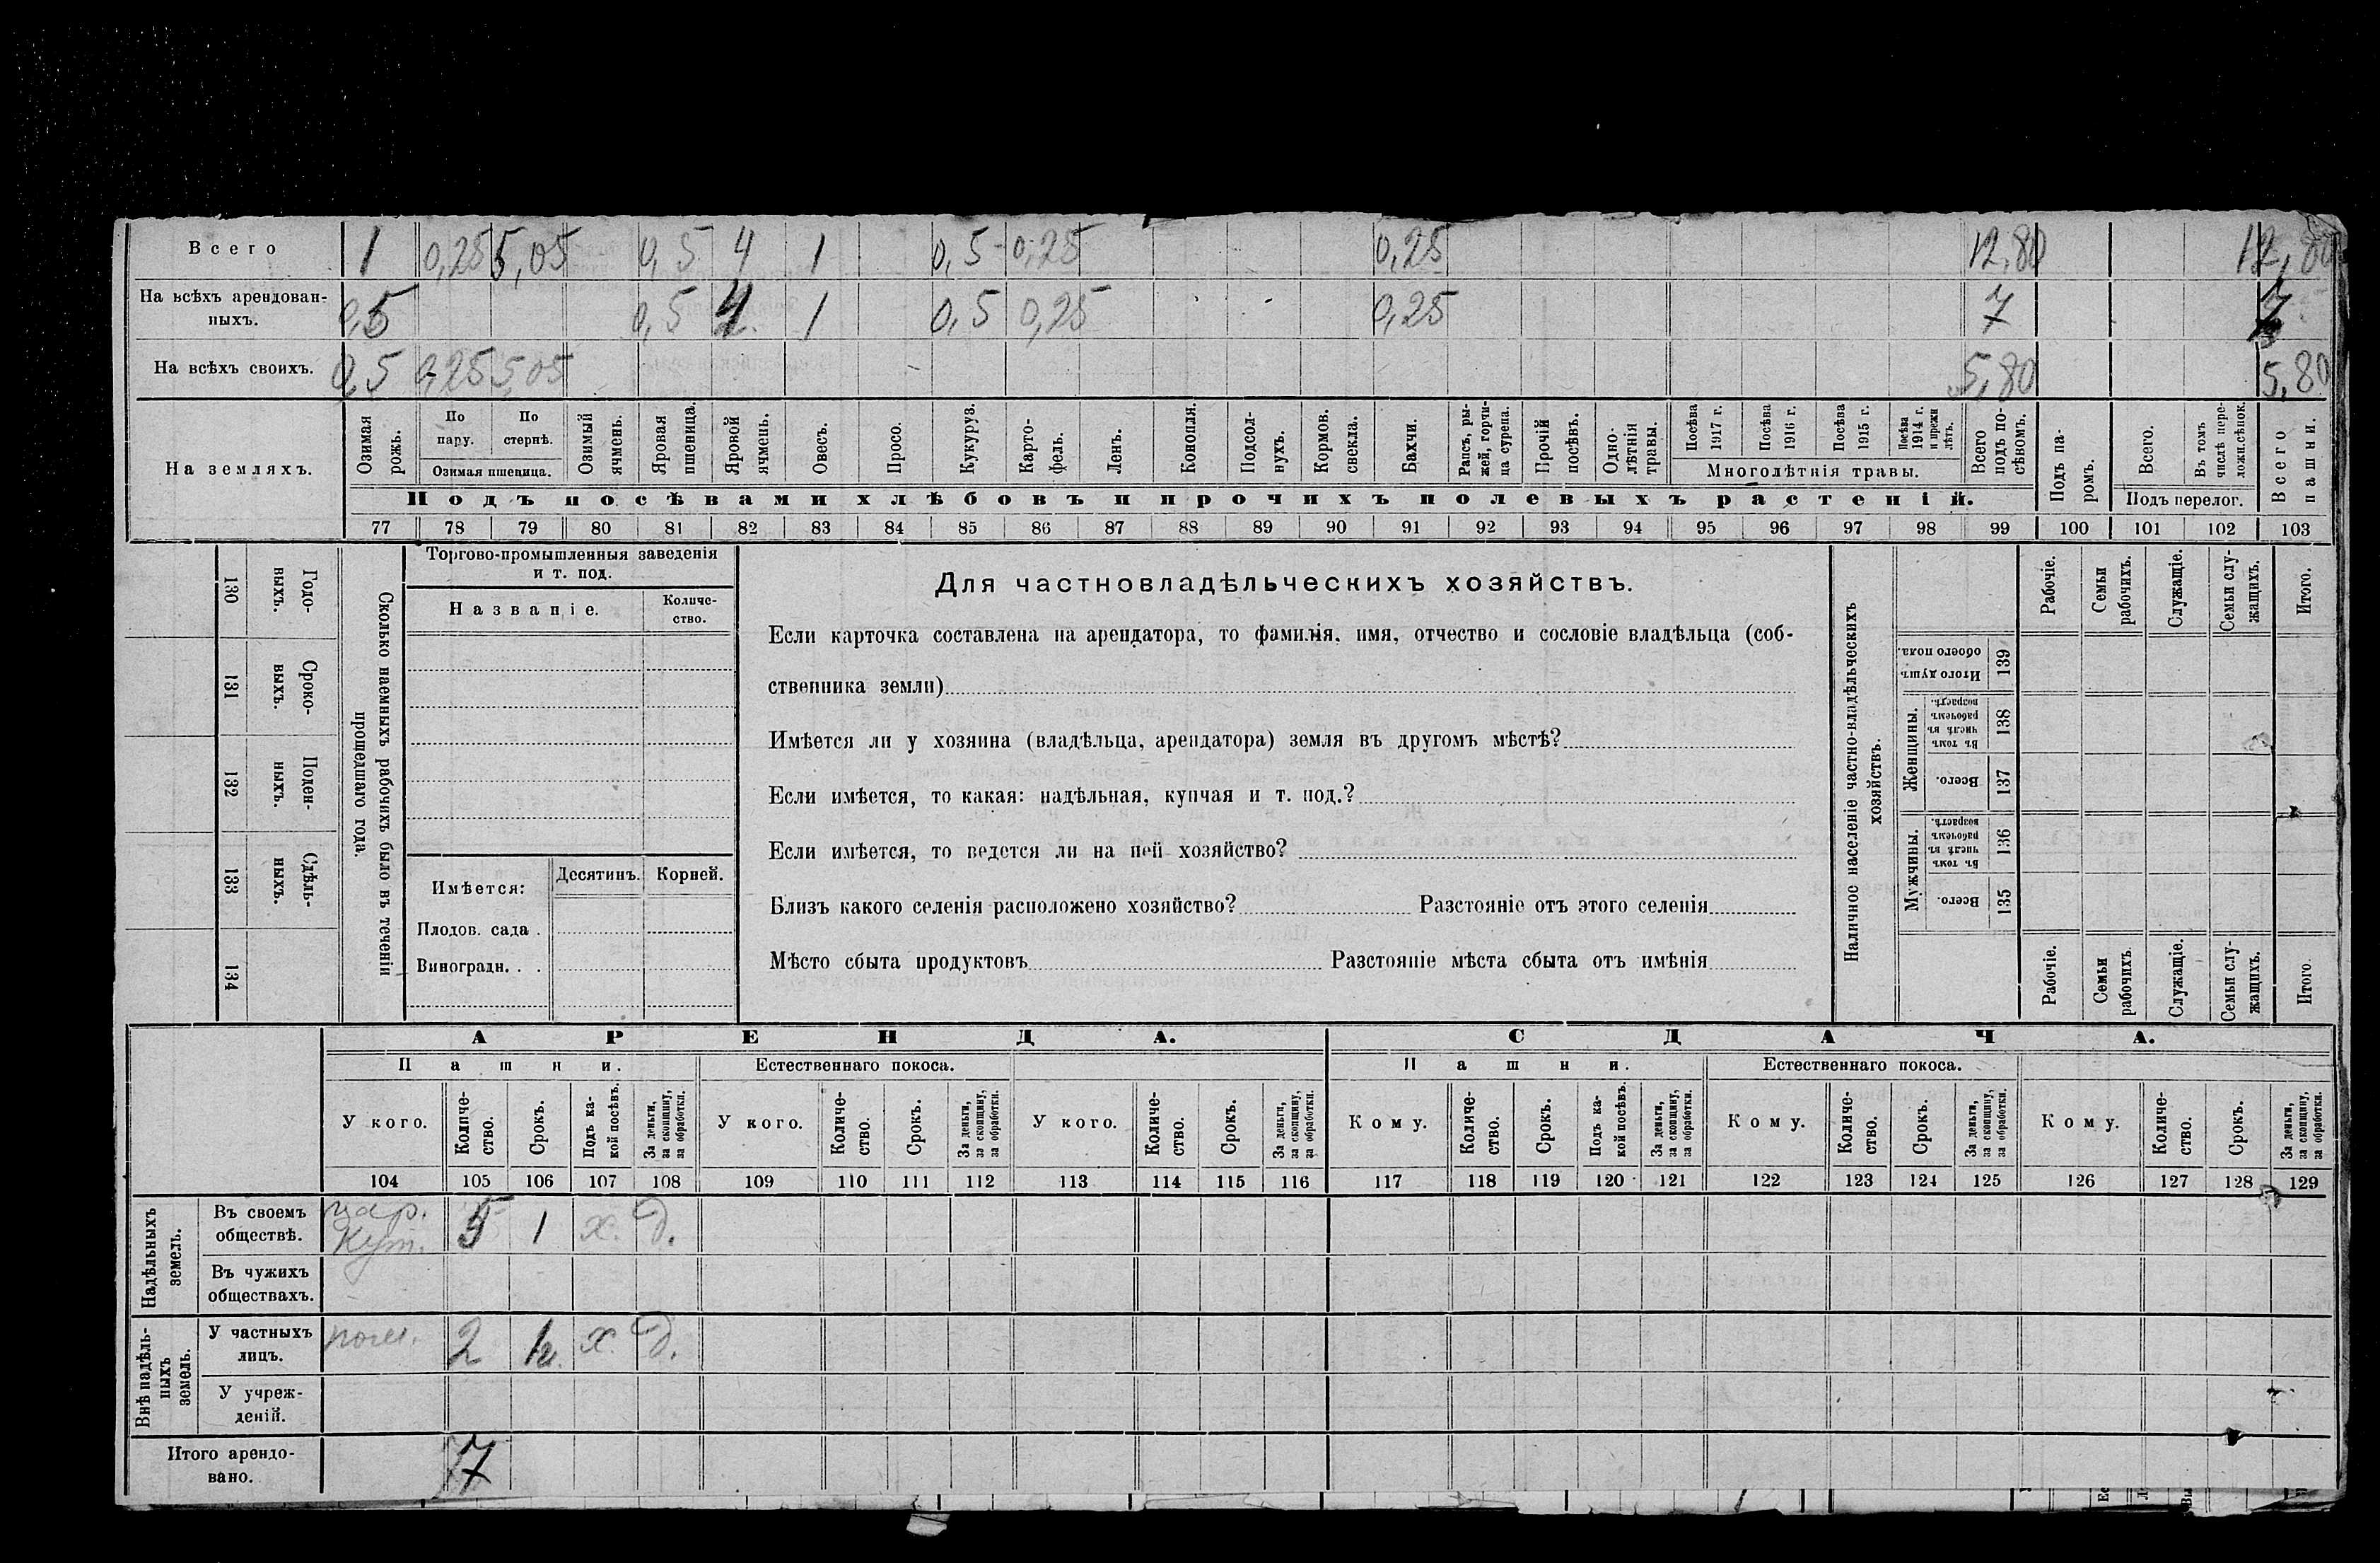 Всего 1 0,25 5,05 0,5 4 1 0,5 0,25 0,25 12,80 12,80
На всѣхъ арендован-
ныхъ. 0,5 0,5 4 1 0,5 0,25 0,25 7 7
На всѣхъ своихъ. 0,5 0,25 5,05 5,80 5,80
На земляхъ.
Озимая
рожь.
По
пару.
По
стернѣ.
Озимая пшеница.
Озимый
ячмень.
Яровая
пшеница.
Яровой
ячмень.
Овесъ.
Просо.
Кукуруз.
Карто-
фель.
Ленъ.
Конопля.
Подсол-
нухъ.
Кормов.
свекла.
Бахчи.
Рапсъ, ры-
жей, горчи-
ца сурепа.
Прочій
посѣвъ.
Одно-
лѣтнія
травы.
Посѣва
1917 г.
Посѣва
1916 г.
Посѣва
1915 г.
Посѣва
1914 г.
и прежн
лѣтъ.
Многолѣтнія травы.
Всего
подъ по-
сѣвомъ.
Подъ па-
ромъ.
Всего.
Въ томъ
числѣ пере-
ложн.сѣнок.
Подъ перелог.
Всего
пашни.
Подъ посѣвами хлѣбовъ и прочихъ полевыхъ растеній.
77 78 79 80 81 82 83 84 85 86 87 88 89 90 91 92 93 94 95 96 97 98 99 100 101 102 103
Годо-
выхъ.
130
Сроко-
выхъ.
131
Поден-
ныхъ.
132
Сдѣль-
ныхъ.
133
134
Сколько наемныхъ рабочихъ было въ теченіи
прошедшаго года.
Торгово-промышленныя заведенія
и т. под.
Названіе.
Количе-
ство.
Имѣется:
Десятинъ.
Корней.
Плодов. сада .
Виноградн. . .
Для частновладѣльческихъ хозяйствъ.
Если карточка составлена на арендатора, то фамилія, имя, отчество и сословіе владѣльца (соб-
ственника земли)
Имѣется ли у хозяина (владѣльца, арендатора) земля въ другомъ мѣстѣ?
Если имѣется, то какая: надѣльная, купчая и т. под.?
Если имѣется, то ведется ли на ней хозяйство?
Близъ какого селенія расположено хозяйство? Разстояніе отъ этого селенія
Мѣсто сбыта продуктовъ Разстояніе мѣста сбыта отъ имѣнія
Наличное населеніе частно-владѣльческихъ
хозяйствъ.
Рабочіе.
Семьи
рабочихъ.
Служащіе.
Семьи слу-
жащихъ.
Итого.
Итого душъ
обоего пола.
139
Женщины.
Въ томъ
числѣ въ
рабочемъ
возрастѣ.
138
Всего.
137
Мужчины.
Въ томъ
числѣ въ
рабочемъ
возрастѣ.
136
Всего.
135
Рабочіе.
Семьи
рабочихъ
Служащіе.
Семьи слу-
жащихъ.
Итого
АРЕНДА. СДАЧА.
Пашни. Естественнаго покоса. Пашни. Естественнаго покоса.
У кого.
Количе-
ство.
Срокъ.
Подъ ка-
кой посѣвъ.
За деньги,
за скопщину,
за обработки.
У кого.
Количе-
ство.
Срокъ.
За деньги,
за скопщину,
за обработки.
У кого.
Количе-
ство.
Срокъ.
За деньги,
за скопщину,
за обработки.
Кому.
Количе-
ство.
Срокъ.
Подъ ка-
кой посѣвъ.
За деньги,
за скопщину,
за обработки.
Кому.
Количе-
ство.
Срокъ.
За деньги,
за скопщину,
за обработки.
Кому.
Количе-
ство.
Срокъ.
За деньги,
за скопщину,
за обработки.
104 105 106 107 108 109 110 111 112 113 114 115 116 117 118 119 120 121 122 123 124 125 126 127 128 129
Надѣльныхъ
земель.
Въ своемъ
обществѣ. 5 1 х. д.
Въ чужихъ
обществахъ.
Внѣ надѣль-
ныхъ
земель.
У частныхъ
лицъ. 2 х. д.
У учреж-
деній.
Итого арендо-
вано. 7